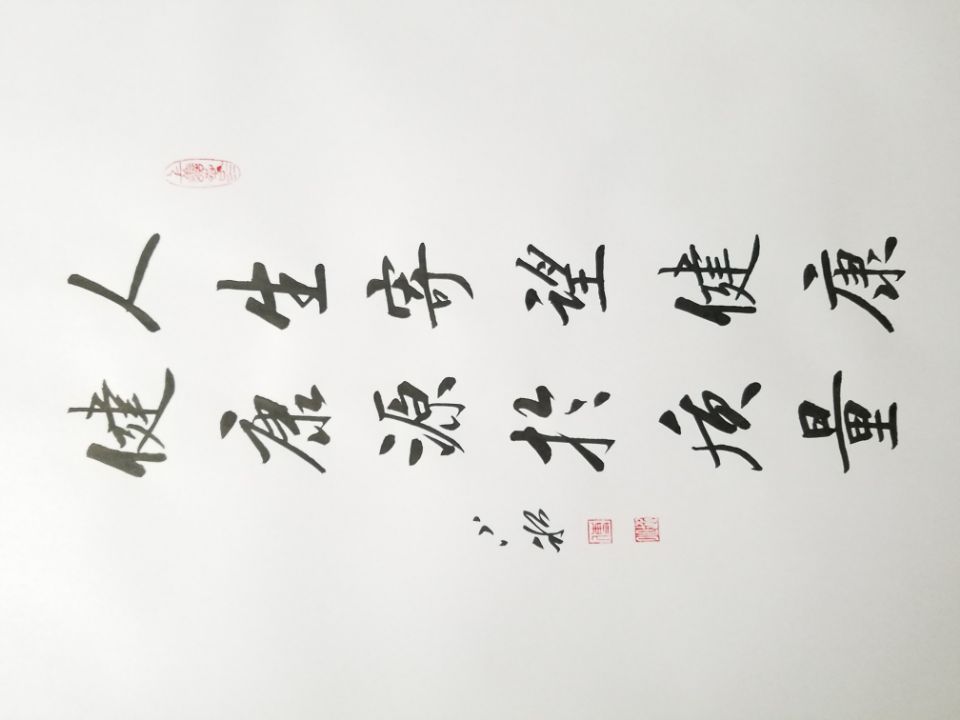 人生寄望健康
健康源於质量